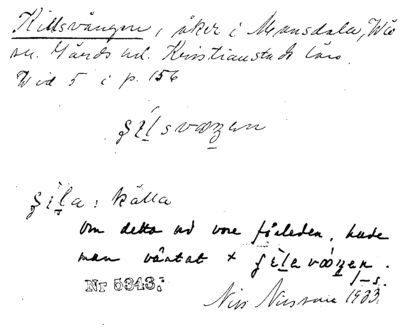 Killsvången, åker i Mansdala, Wiö
sn. Gärds hd. Kristianstads län.
Wid 5 i p. 156
ʃílsvæŋen
ʃìla: källa
om detta nu vore förleden, hade
man väntat × ʃìlavæŋen.
Nr 5343:
Nils Nilsson 1903